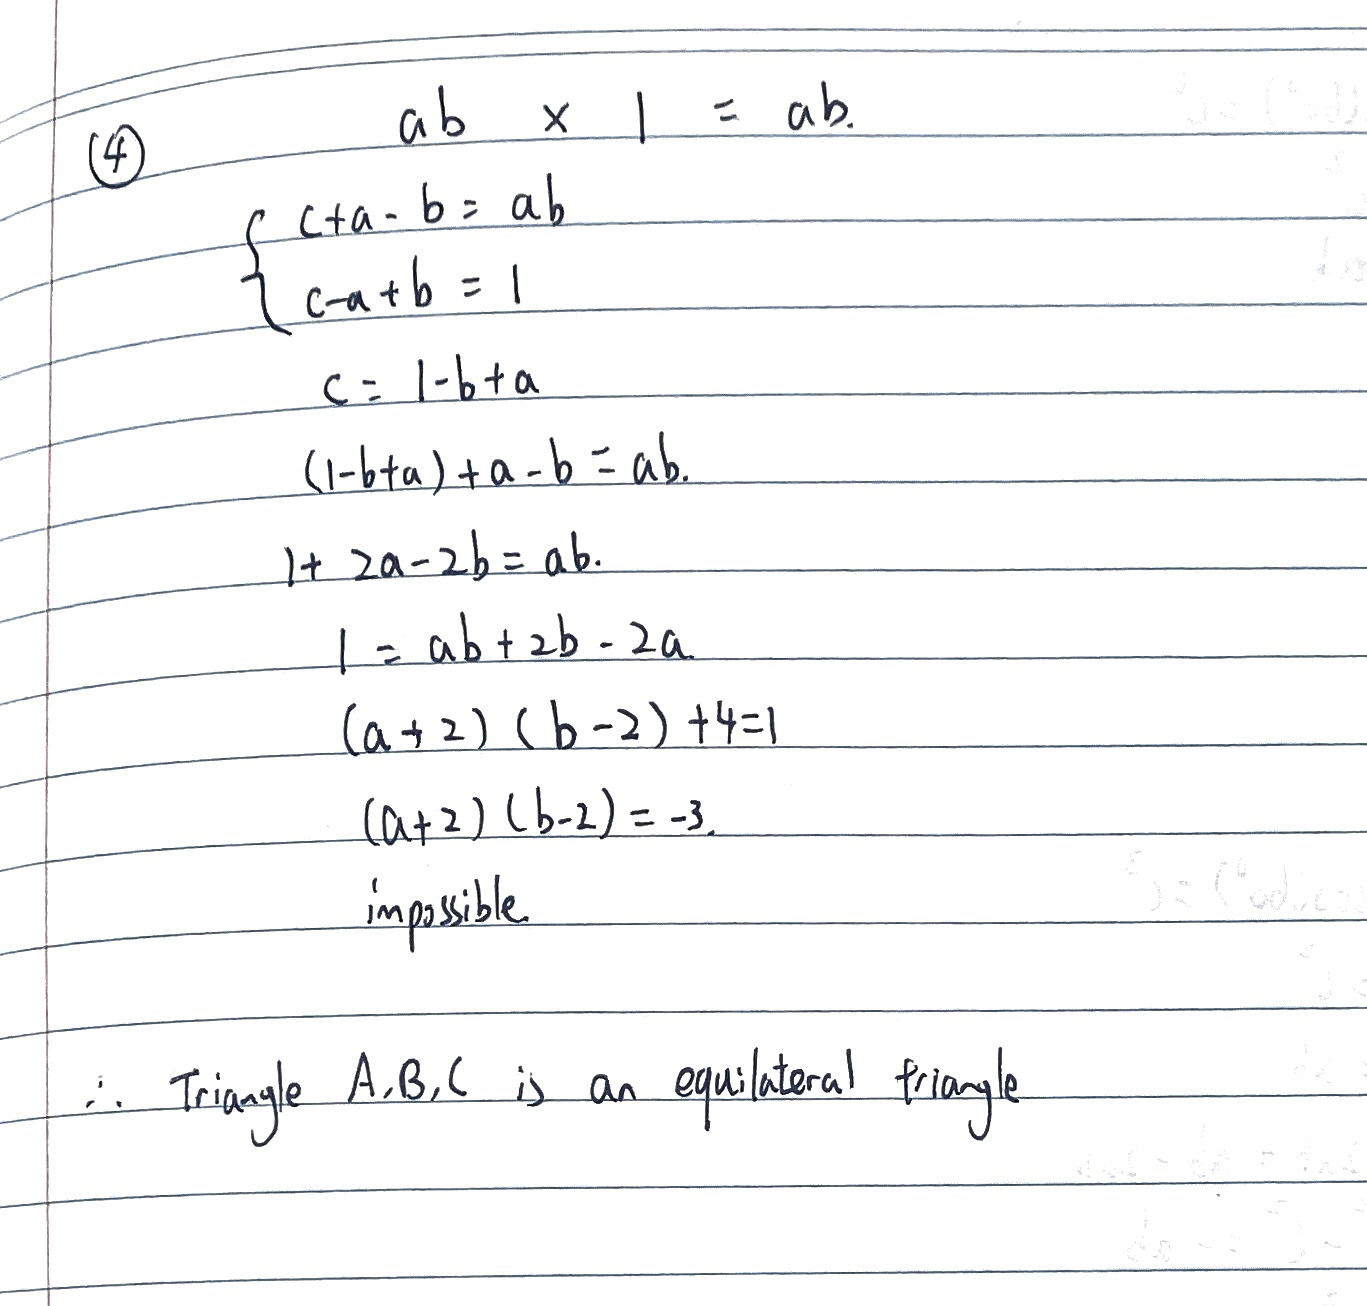 ④ ab × 1 = ab.
{ c+a-b = ab
c-a+b = 1
c = 1-b+a
(1-b+a)+a-b = ab.
1+2a-2b = ab.
1 = ab+2b-2a
(a+2)(b-2)+4=1
(a+2)(b-2) = -3.
impossible.
∴ Triangle A,B,C is an equilateral triangle